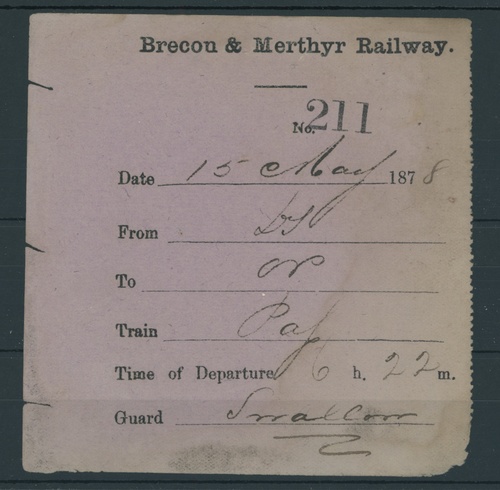 Brecon & Merthyr Railway.
No. 211
Date 15 May 1878
From
To
Train Pas
Time of Departure 6 h. 22 m.
Guard